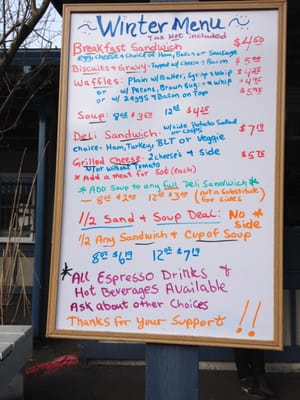 Winter Menu
Tax Not included
Breakfast Sandwich $4.50
egg, cheese & choice of Ham, Bacon or Sausage
Biscuits & Gravy: Topped w/ cheese & Bacon $5.00
Waffles: Plain w/ Butter, Syrup & Whip $4.25
or w/ Pecans, Brown Sug. & Whip $4.95
or w/ 2 eggs & Bacon on Top $5.95
Soup: 8oz $3.50 12oz $4.25
Deli Sandwich: w/ side Potato Salad or Chips $7.19
choice - Ham, Turkey, BLT or Veggie
Grilled Cheese: 2 cheese's & side $5.75
w/ or without Tomato
* Add a meat for 50¢ (each)
* ADD Soup to any full Deli Sandwich *
8oz $2.00 12oz $3.00 (not a substitute for sides)
1/2 Sand & Soup Deal: No side *
1/2 Any Sandwich & Cup of Soup
8oz $6.19 12oz $7.19
* All Espresso Drinks &
Hot Beverages Available
Ask about other Choices
Thanks for Your Support !!